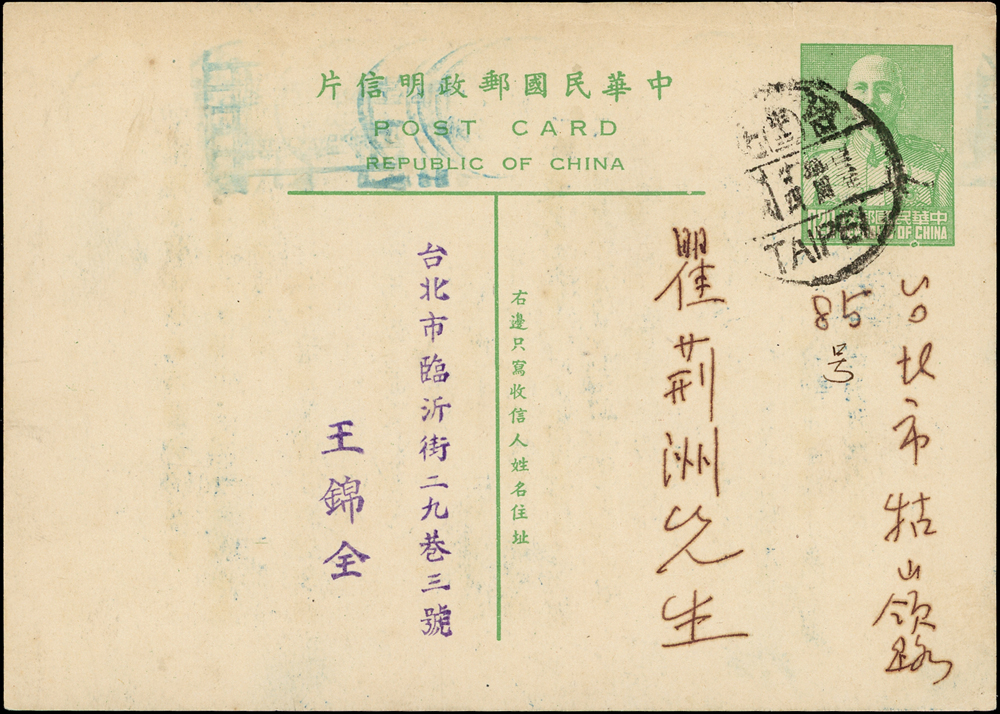 中華民國郵政明信片
POST CARD
REPUBLIC OF CHINA
中華民國郵
OF CHINA
TAIPEI
台北市牯岭路
85号
瞿荆洲先生
右邊只寫收信人姓名住址
台北市臨沂街二九巷三號
王錦全